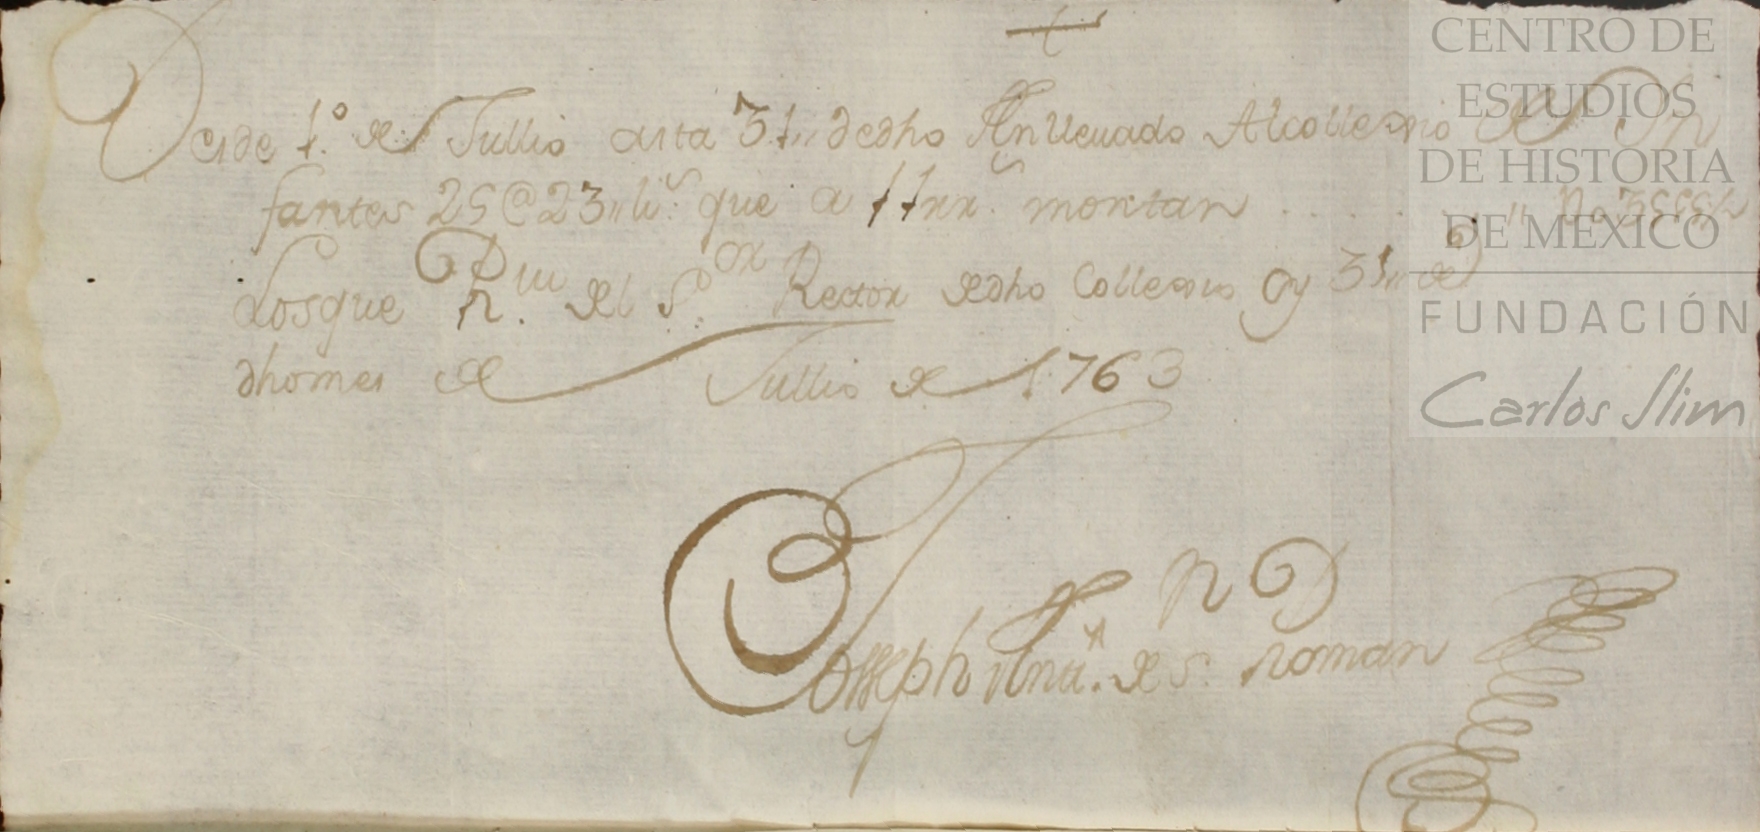 Desde 1.º de Jullio asta 31,, dedho An lleuado Al collexio de Yn
fantes 25@23,, lis. que a 11 rrs. montan
Los que Rui. del Sor. Rector dedho Collexio Oy 31,, de
dho mes de Jullio de 1763
Joseph Antt. de S. Roman
CENTRO DE
ESTUDIOS
DE HISTORIA
DE MÉXICO
FUNDACIÓN
Carlos Slim